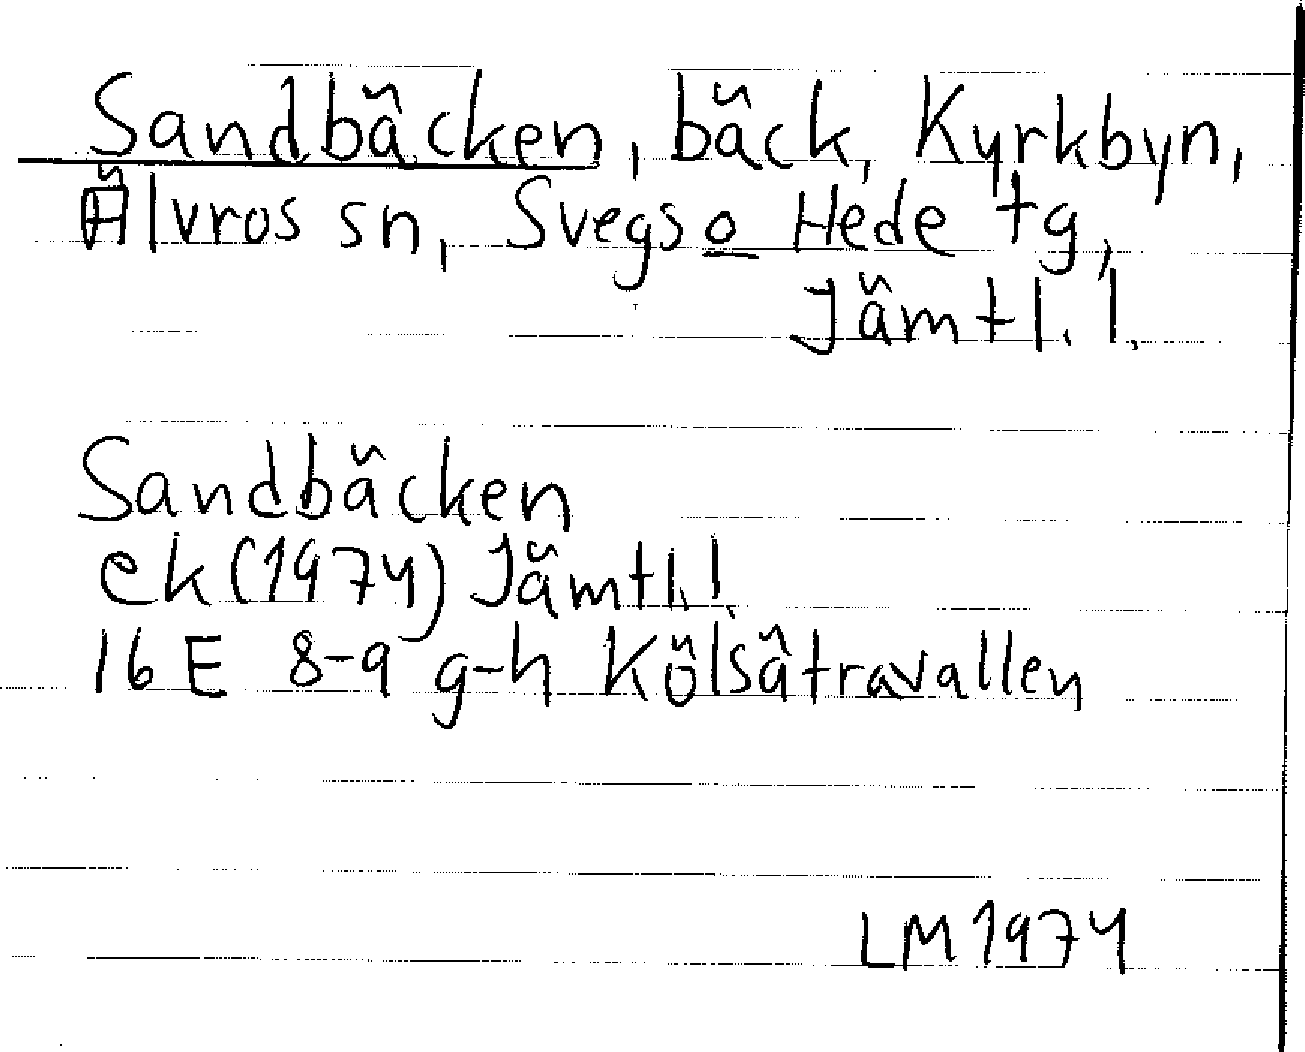 Sandbäcken, bäck, Kyrkbyn,
Älvros sn, Svegs o Hede tg,
Jämtl. l.
Sandbäcken
ek (1974) Jämtl. l.
16 E 8-9 g-h Kölsätravallen
LM 1974